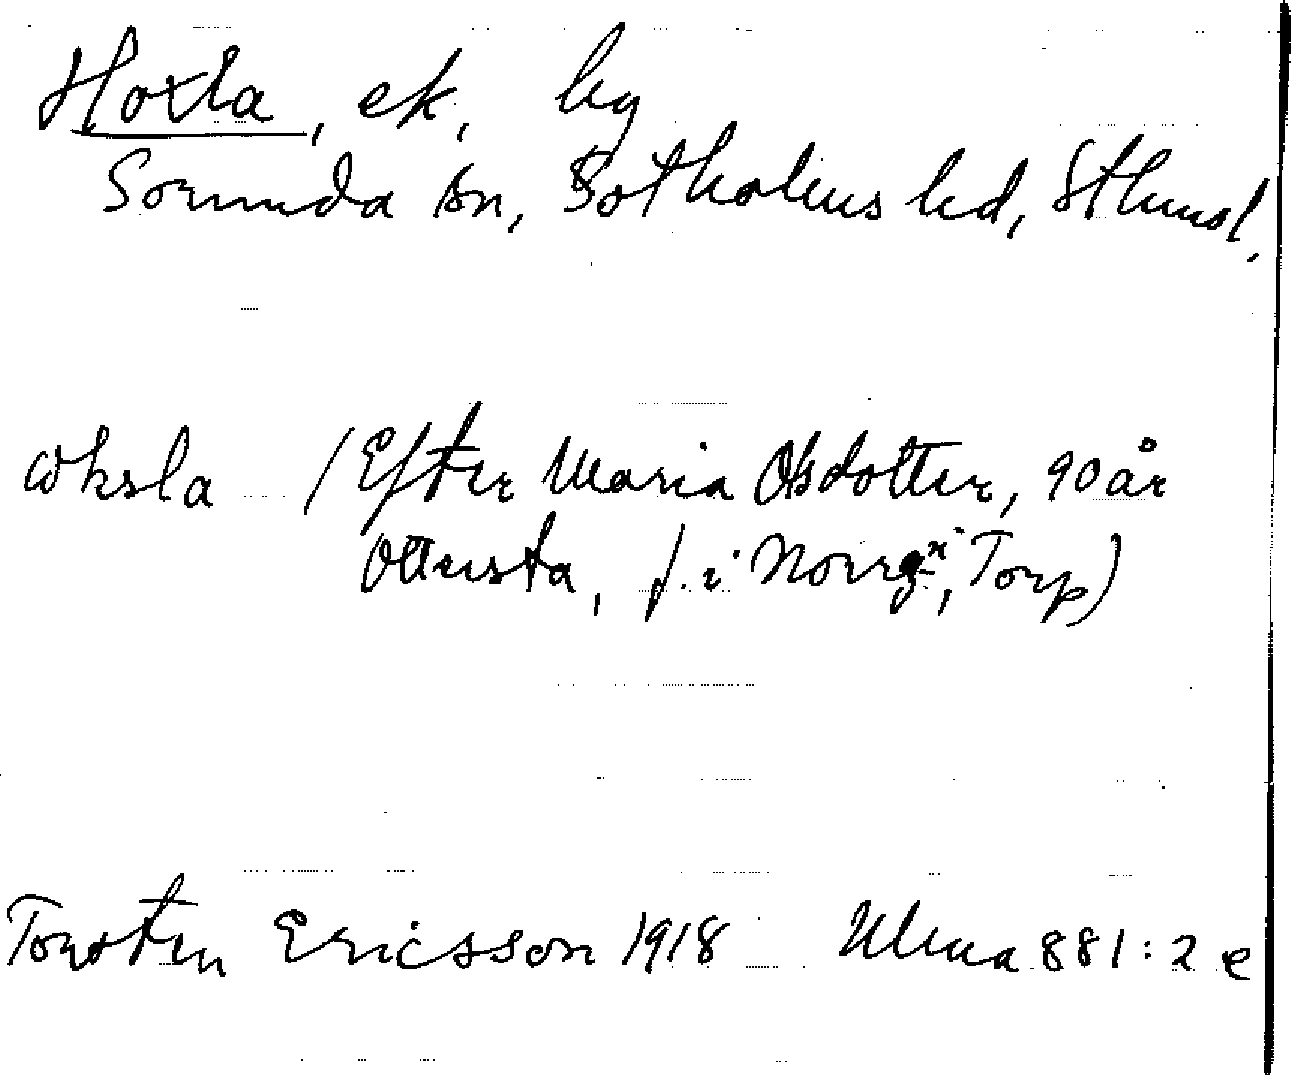 Hoxla, ek, by
Sorunda sn, Sotholms hd, Sthmsl.
ωksla (Efter Maria Olsdotter, 90 år
Ottersta, f. i Norrg:n, Torp)
Torsten Ericsson 1918 Ulma 881:2 e